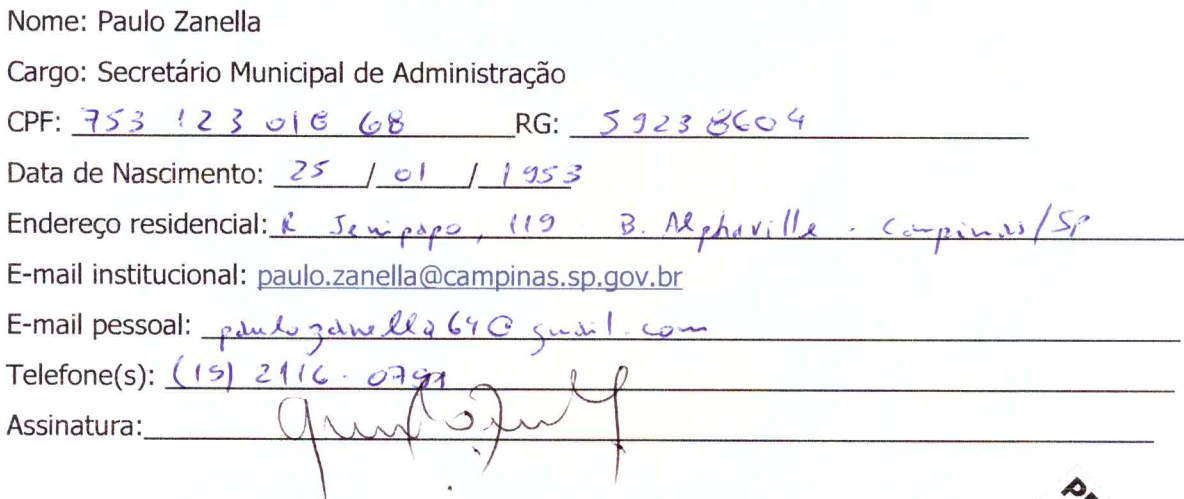 Nome: Paulo Zanella
Cargo: Secretário Municipal de Administração
CPF: 753 123 018 68 RG: 59238604
Data de Nascimento: 25 / 01 / 1953
Endereço residencial: R Jenipapo, 119 B. Alphaville - Campinas/SP
E-mail institucional: paulo.zanella@campinas.sp.gov.br
E-mail pessoal: paulozanella64@gmail.com
Telefone(s): (19) 2116-0791
Assinatura: